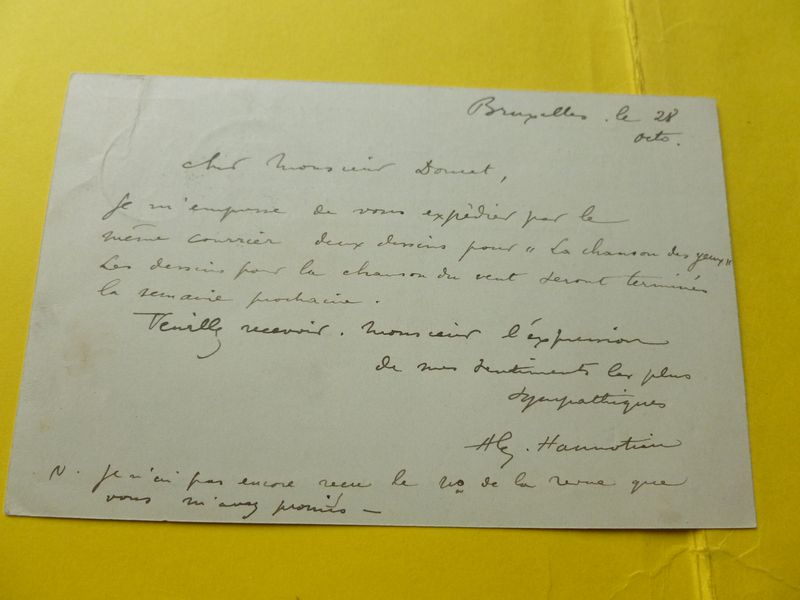 Bruxelles. le 28
octo.
Cher Monsieur Doucet,
Je m'empresse de vous expédier par le
même courrier deux dessins pour "La chanson des yeux"
Les dessins pour la chanson du vent seront terminés
la semaine prochaine.
Veuillez recevoir. Monsieur l'expression
de mes sentiments les plus
sympathiques
Alex. Hannotiau
N. Je n'ai pas encore reçu le No de la revue que
vous m'avez promis —